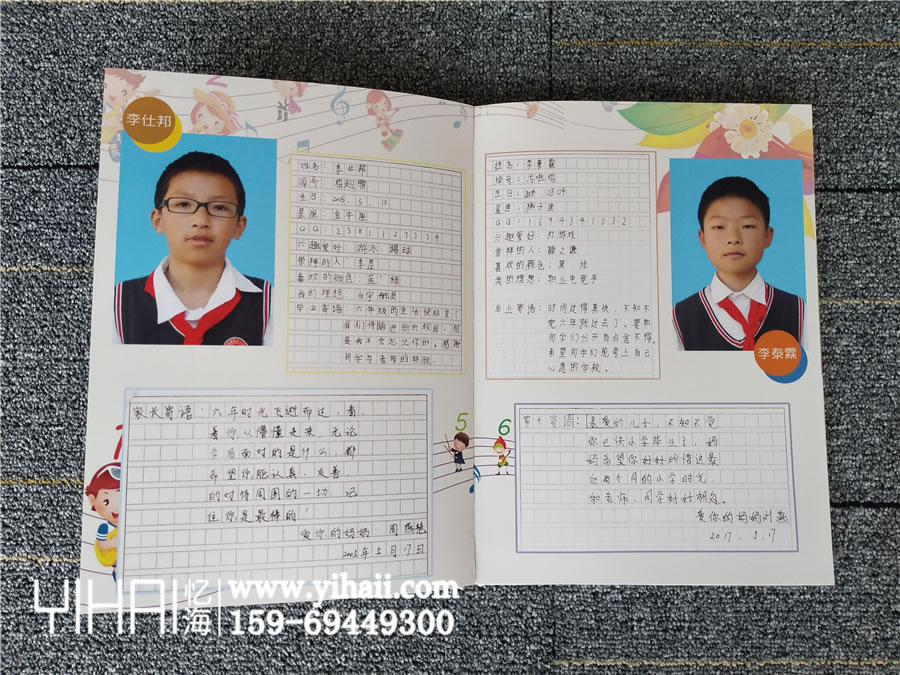 李仕邦
姓名：李仕邦
绰号：鸡翅膀
生日：2005. 5. 13
星座：金牛座
QQ：2381127374
兴趣爱好：游泳 踢球
崇拜的人：李晨
喜欢的颜色：蓝 绿
我的理想：当宇航员
毕业寄语：六年级的生活快结束了
我们将踏进新的校园，但
是我不会忘记你的。感谢
同学与老师的照顾
家长寄语：六年时光飞逝而过，看
着你从懵懂走来，无论
今后面对的是什么，都
希望你能认真、友善
的对待周围的一切，记
住你是最棒的！
爱你的妈妈 周
2005年5月17日
5
姓名：李泰霖
生日：2005 08.04
星座：狮子座
QQ：1694341032
兴趣爱好：打游戏
崇拜的人：薛之谦
喜欢的颜色：黑 绿
我的理想：职业电竞手
毕业寄语：时间过得真快，不知不
觉六年就过去了。要和
同学们分开有点舍不得，
希望同学们能考上自己
心愿的学校。
李泰霖
6
家长寄语：亲爱的儿子，不知不觉
你已快小学毕业了，妈
妈希望你好好珍惜这最
后两个月的小学时光，
和老师、同学好好相处。
爱你的妈妈刘燕
2017. 5. 17
YIHAI 忆海
www.yihaii.com
159-69449300